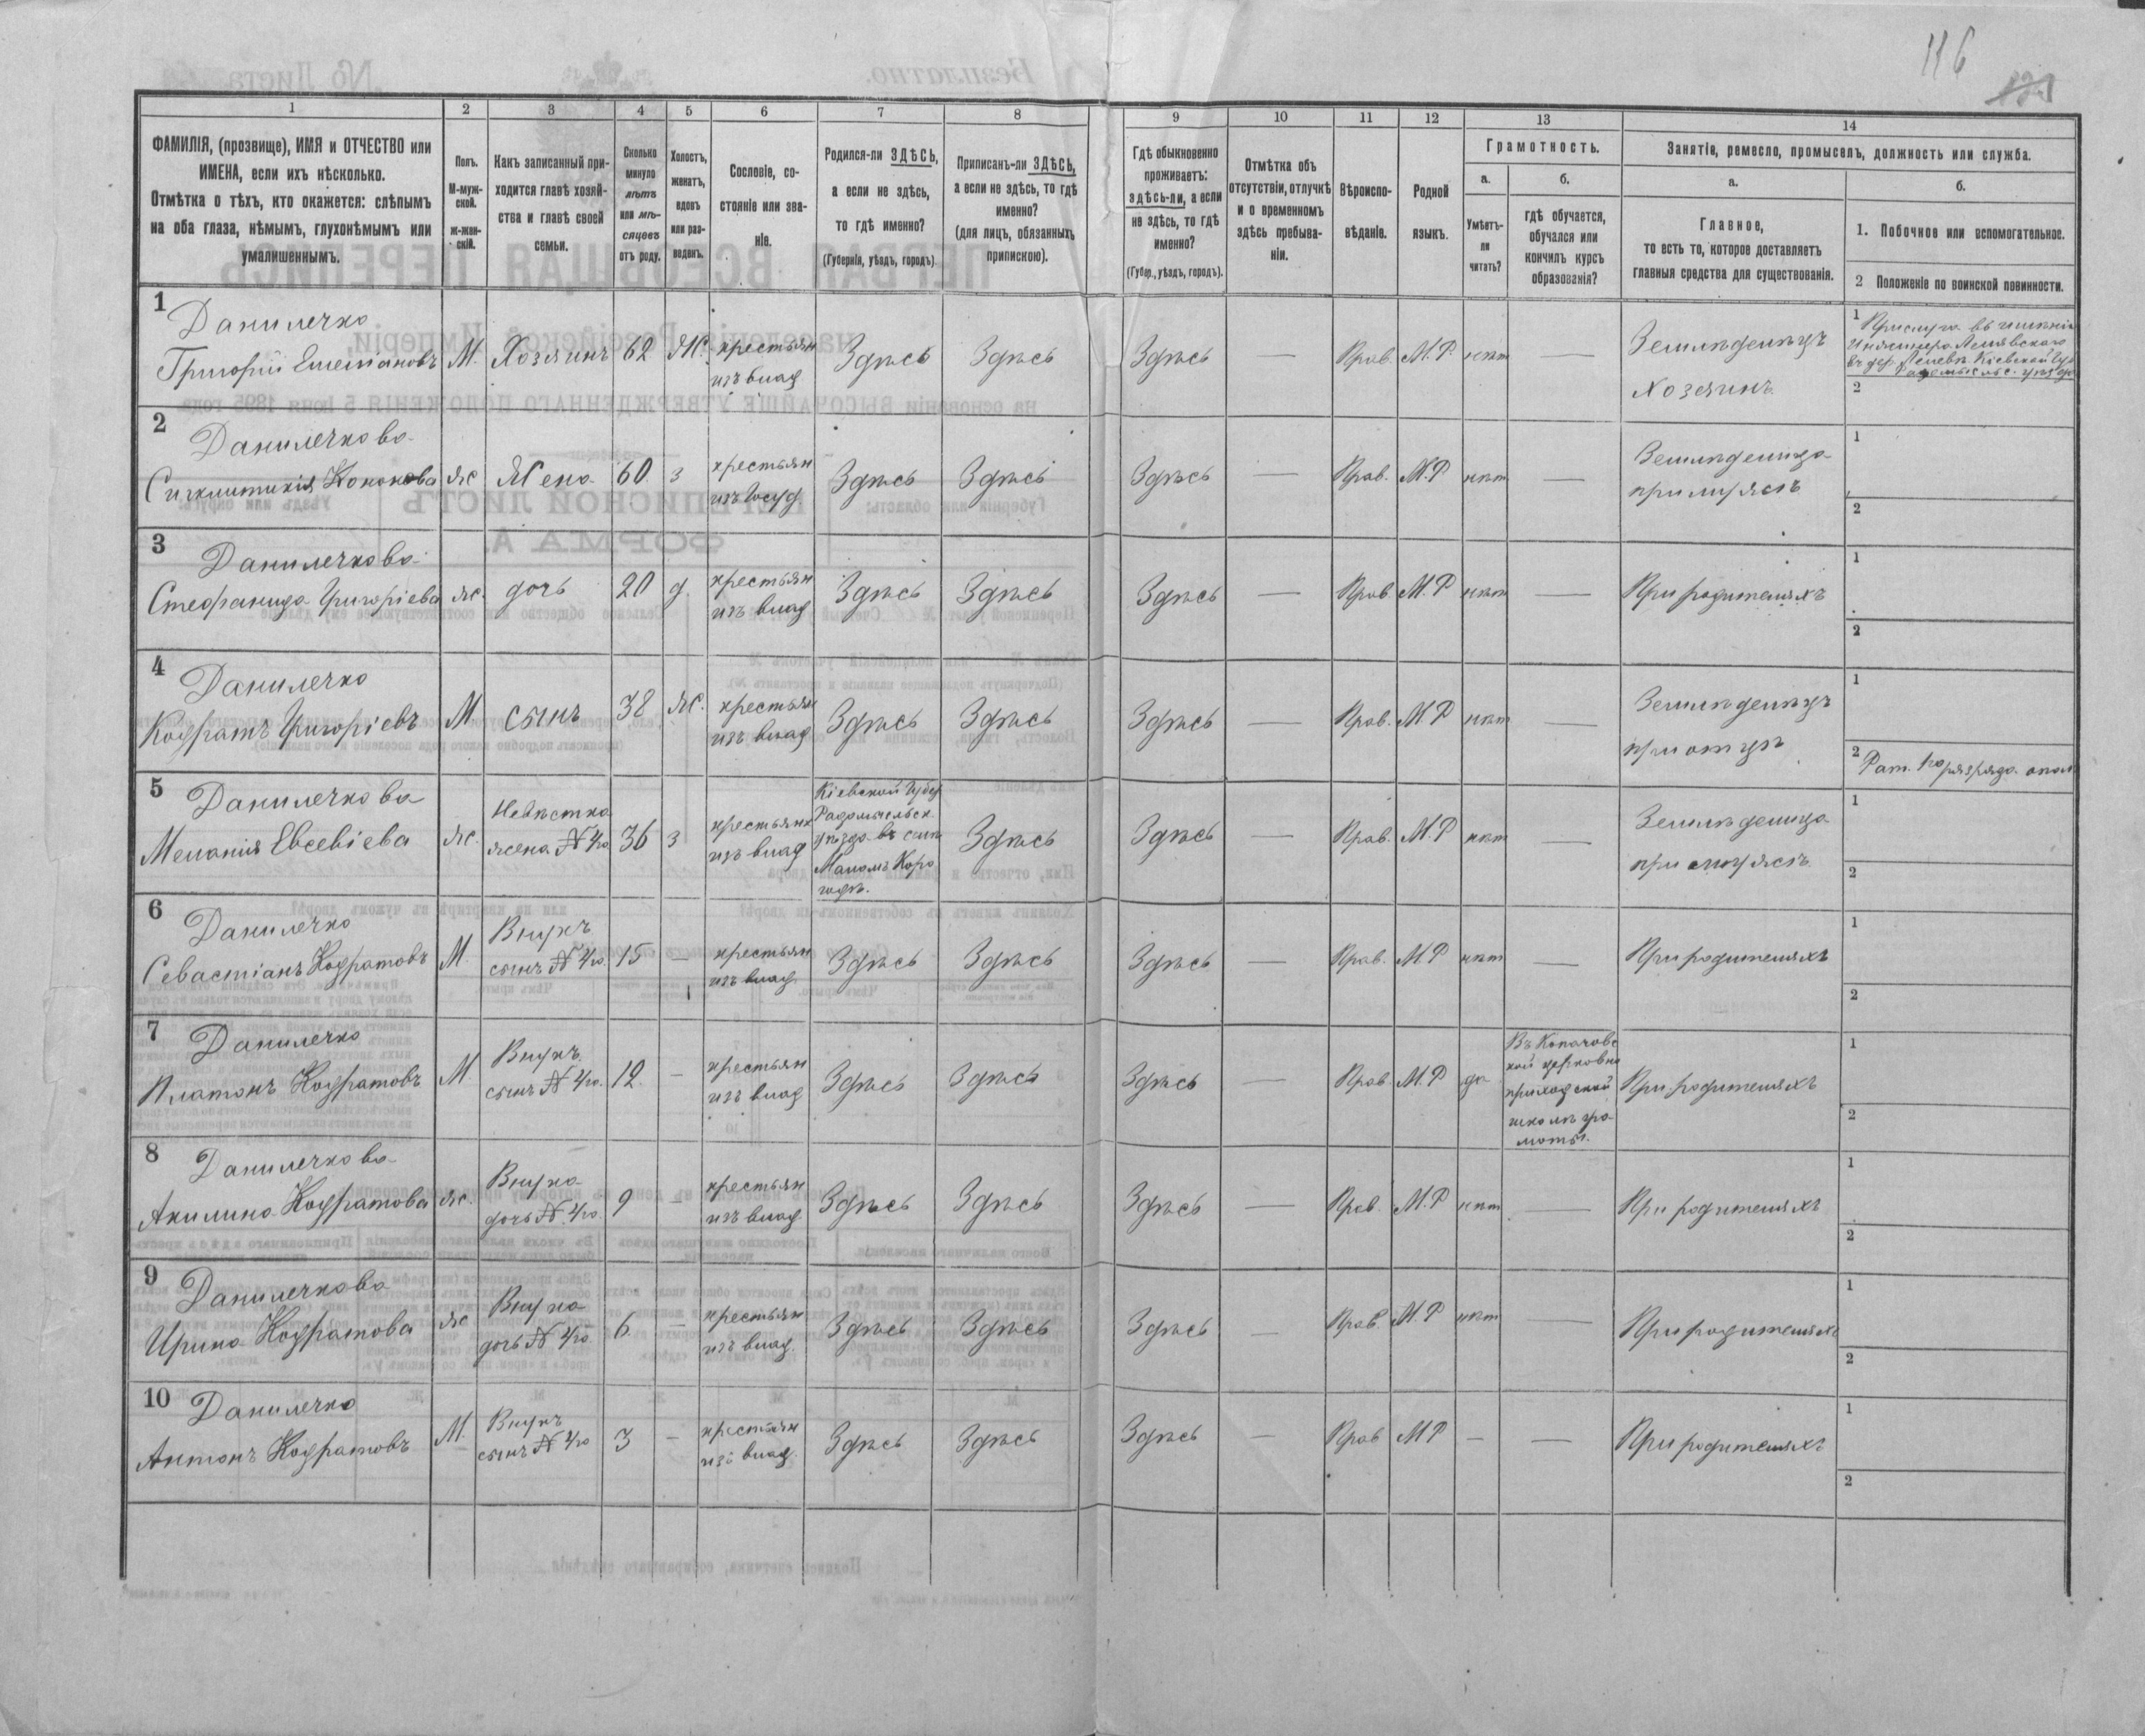 116
1
2
3
4
5
6
7
8
9
10
11
12
13
14
ФАМИЛІЯ, (прозвище), ИМЯ и ОТЧЕСТВО или
ИМЕНА, если ихъ нѣсколько.
Отмѣтка о тѣхъ, кто окажется: слѣпымъ
на оба глаза, нѣмымъ, глухонѣмымъ или
умалишеннымъ.
Полъ.
М-муж-
ской.
ж-жен-
скій.
Какъ записанный при-
ходится главѣ хозяй-
ства и главѣ своей
семьи.
Сколько
минуло
лѣтъ
или мѣ-
сяцевъ
отъ роду.
Холостъ,
женатъ,
вдовъ
или раз-
веденъ.
Сословіе, со-
стояніе или зва-
ніе.
Родился-ли ЗДѢСЬ,
а если не здѣсь,
то гдѣ именно?
(Губернія, уѣздъ, городъ)
Приписанъ-ли ЗДѢСЬ,
а если не здѣсь, то гдѣ
именно?
(для лицъ, обязанныхъ
припискою).
Гдѣ обыкновенно
проживаетъ:
здѣсь-ли, а если
не здѣсь, то гдѣ
именно?
(Губер., уѣздъ, городъ).
Отмѣтка объ
отсутствіи, отлучкѣ
и о временномъ
здѣсь пребыва-
ніи.
Вѣроиспо-
вѣданіе.
Родной
языкъ.
Грамотность.
а.
б.
Умѣетъ-
ли
читать?
гдѣ обучается,
обучался или
кончилъ курсъ
образованія?
Занятіе, ремесло, промыселъ, должность или служба.
а.
б.
Главное,
то есть то, которое доставляетъ
главныя средства для существованія.
1. Побочное или вспомогательное.
2 Положеніе по воинской повинности.
1
Данилечко
Григорій Емеліановъ
М.
Хозяинъ
62
Ж.
крестьян
изъ влад
Здѣсь
Здѣсь
Здѣсь
—
Прав.
М.Р.
нѣт
—
Земледѣлецъ
Хозяинъ.
1
Прислуга въ имѣніи
въ дер.
Кіевской Губ
2
2
Данилечкова
Сигклитикія Кононова
ж
Жена
60
з
крестьян
изъ Госуд
Здѣсь
Здѣсь
Здѣсь
—
Прав.
М.Р
нѣт
—
Земледѣлица
при мужѣ
1
2
3
Данилечкова
Стефанида Григоріева
ж.
дочь
20
д
крестьян
изъ влад
Здѣсь
Здѣсь
Здѣсь
—
Прав
М.Р
нѣт
—
При родителяхъ
1
2
4
Данилечко
Кодратъ Григоріевъ
М
сынъ
38
ж.
крестьян
изъ влад
Здѣсь
Здѣсь
Здѣсь
—
Прав.
М.Р
нѣт
—
Земледѣлецъ
при отцѣ
1
2
Рат. 1го разряда опол
5
Данилечкова
Меланія Евсевіева
ж.
Невѣстка
жена № 4го
36
з
крестьянк
изъ влад
Кіевской Губер
Радомысльск
уѣзда въ селѣ
Маломъ Коро
годѣ.
Здѣсь
Здѣсь
—
Прав.
М.Р
нѣт
—
Земледѣлица
при мужѣ
1
2
6
Данилечко
Севастіанъ Кодратовъ
М.
Внукъ
сынъ № 4го.
15
—
крестьян
изъ влад
Здѣсь
Здѣсь
Здѣсь
—
Прав.
М.Р
нѣт
—
При родителяхъ
1
2
7
Данилечко
Платонъ Кодратовъ
М.
Внукъ
сынъ № 4го.
12.
—
крестьян
изъ влад
Здѣсь
Здѣсь
Здѣсь
—
Прав
М.Р
да
Въ Копачовс
кой церковно
приходской
школѣ гра
моты.
При родителяхъ
1
2
8
Данилечкова
Акилина Кодратова
ж.
Внука
дочь № 4го.
9
—
крестьян
изъ влад
Здѣсь
Здѣсь
Здѣсь
—
Прав.
М.Р
нѣт
—
При родителяхъ
1
2
9
Данилечкова
Ирина Кодратова
ж
Внука
дочь № 4го
6.
—
крестьян
изъ влад.
Здѣсь
Здѣсь
Здѣсь
—
Прав.
М.Р
нѣт
—
При родителяхъ
1
2
10
Данилечко
Антонъ Кодратовъ
М.
Внукъ
сынъ № 4го
3
—
крестьян
изъ влад.
Здѣсь
Здѣсь
Здѣсь
—
Прав
М Р
—
—
При родителяхъ
1
2